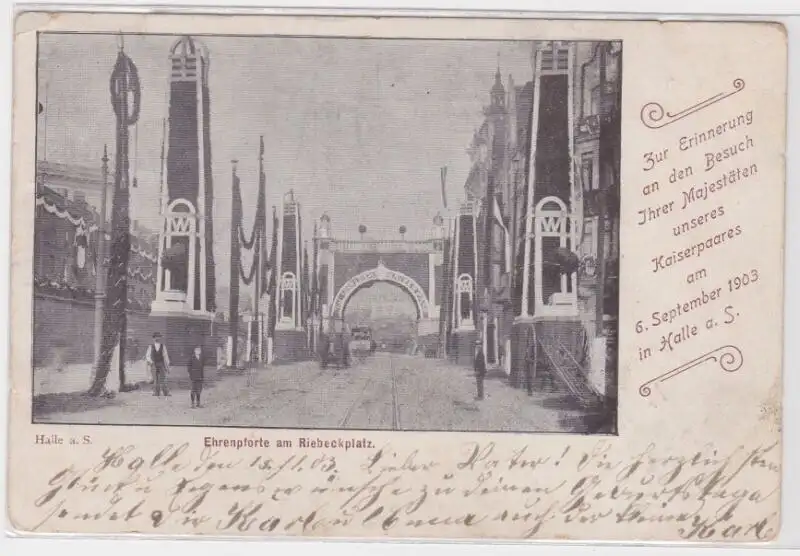 Zur Erinnerung
an den Besuch
Ihrer Majestäten
unseres
Kaiserpaares
am
6. September 1903
in Halle a. S.
W
W
Halle a. S.
Ehrenpforte am Riebeckplatz.
Halle den 13./11.03. Lieber Vater! Die herzlichsten
Glück u Segenswünsche zu deinem Geburtstage
sendet Dir Karl u Anna auch der kleine
Karl